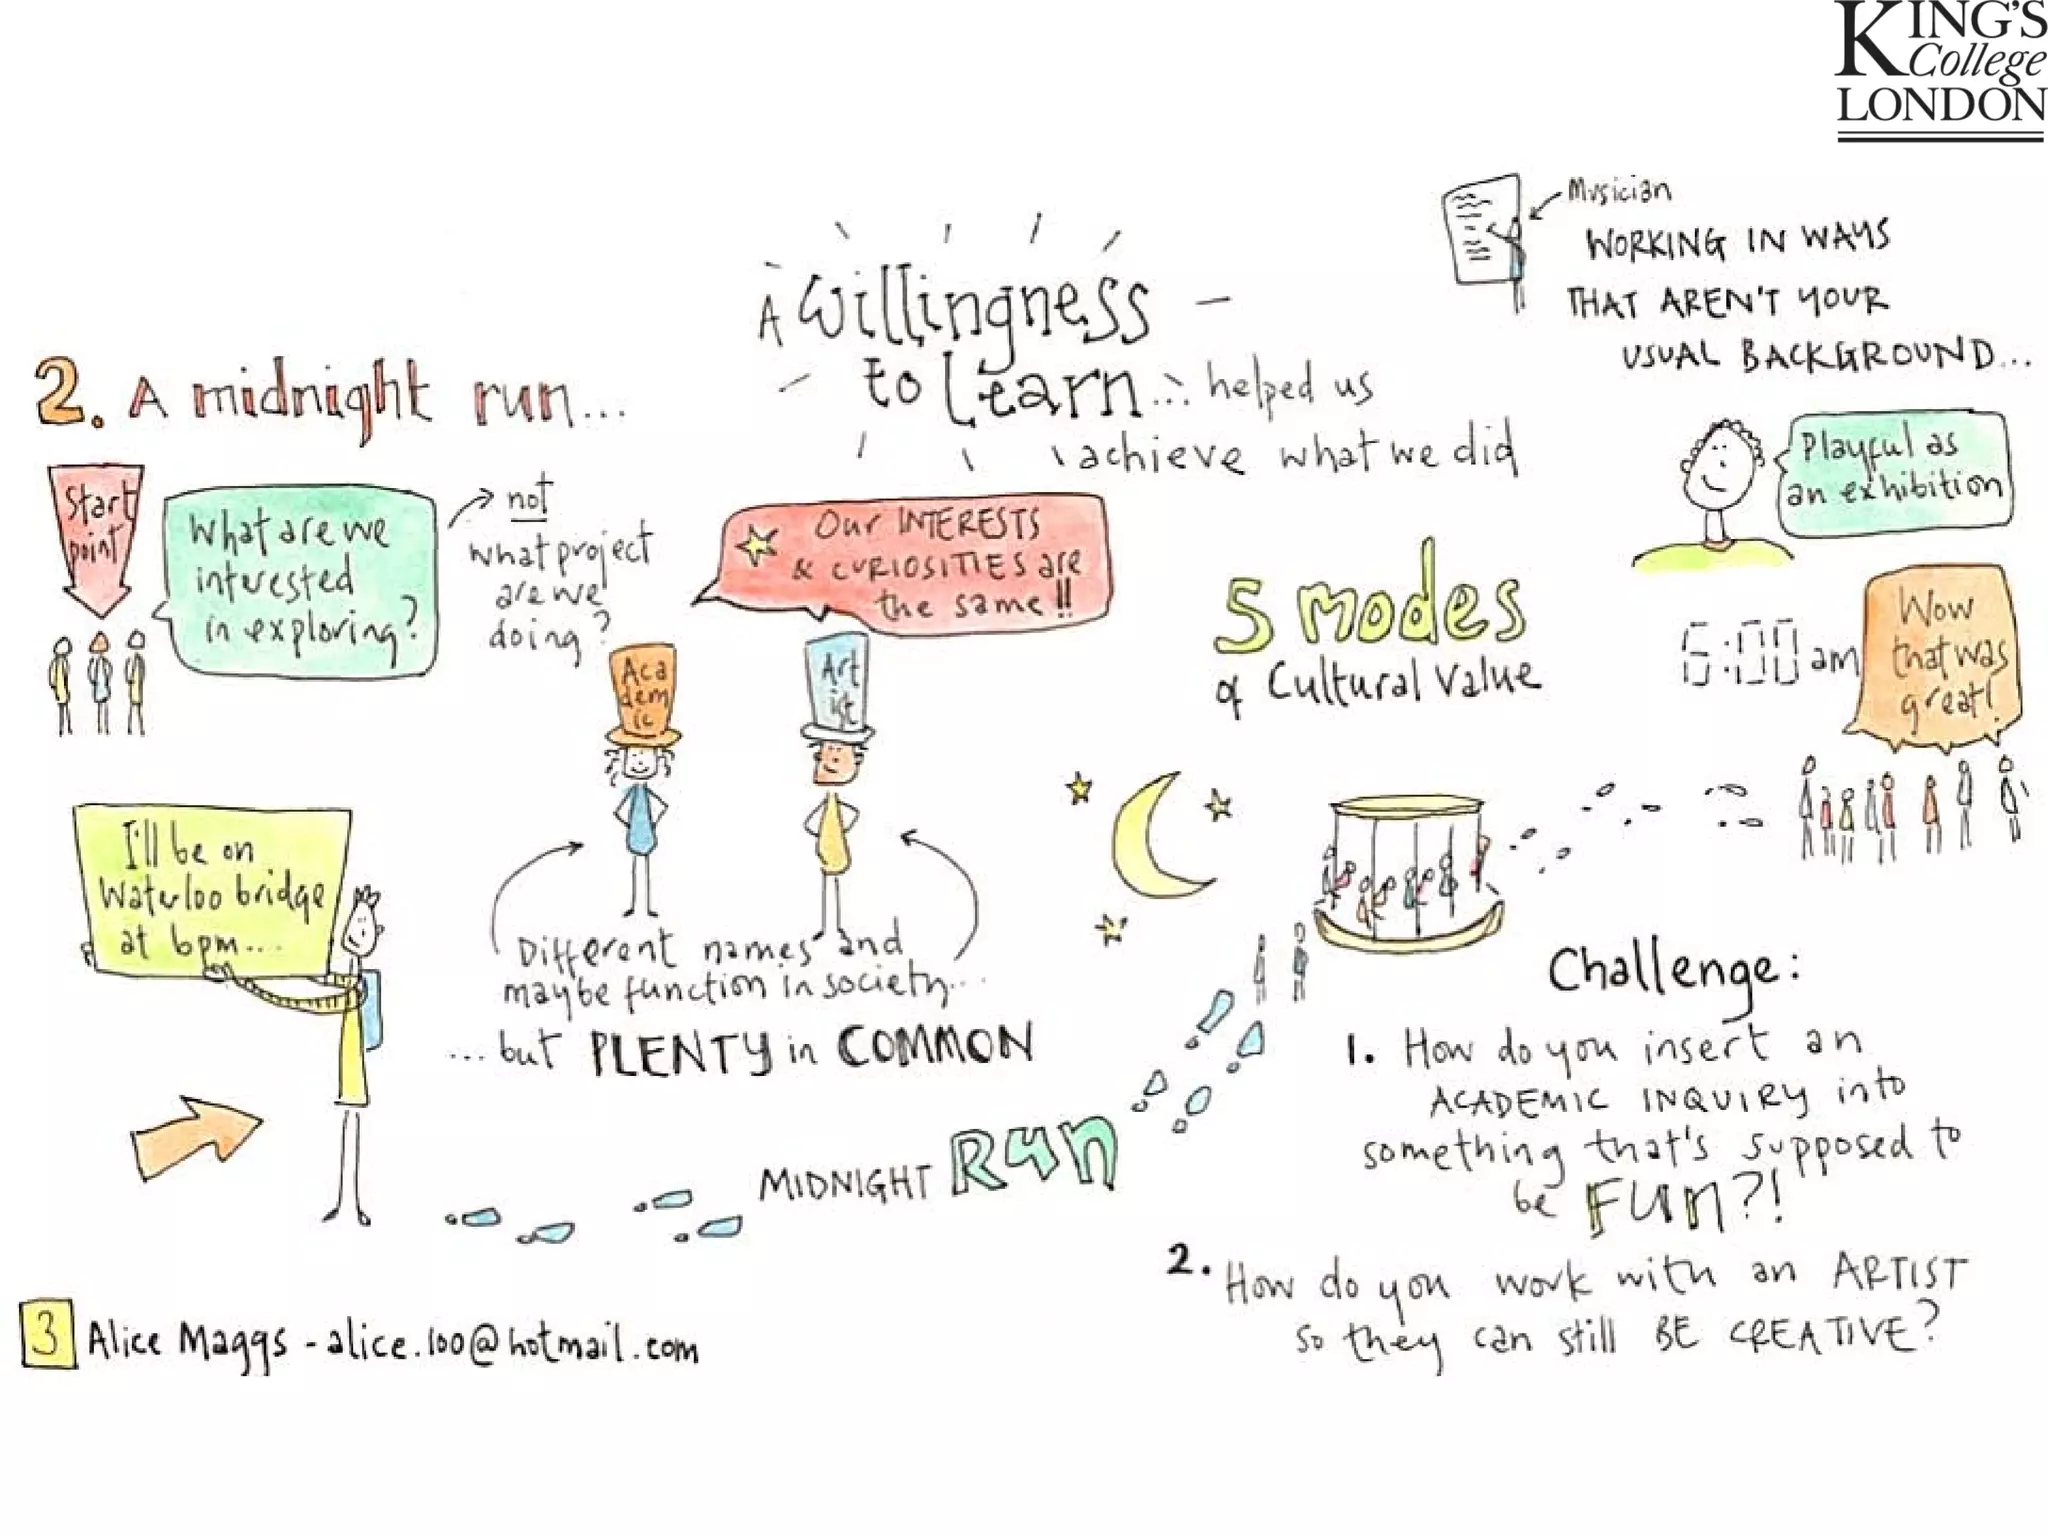 KING'S
College
LONDON
Musician
WORKING IN WAYS
THAT AREN'T YOUR
USUAL BACKGROUND...
A Willingness
to Learn... helped us
achieve what we did
2. A midnight run...
Start
point
What are we
interested
in exploring?
not
what project
are we
doing?
Our INTERESTS
& CURIOSITIES are
the same!!
Playful as
an exhibition
5 modes
of Cultural Value
Aca
dem
ic
Art
ist
6:00 am
Wow
that was
great!
I'll be on
Waterloo bridge
at 6pm....
Different names and
maybe function in society...
...but PLENTY in COMMON
MIDNIGHT RUN
Challenge:
1. How do you insert an
ACADEMIC INQUIRY into
something that's supposed to
be FUN?!
2. How do you work with an ARTIST
so they can still BE CREATIVE?
3 Alice Maggs - alice.100@hotmail.com